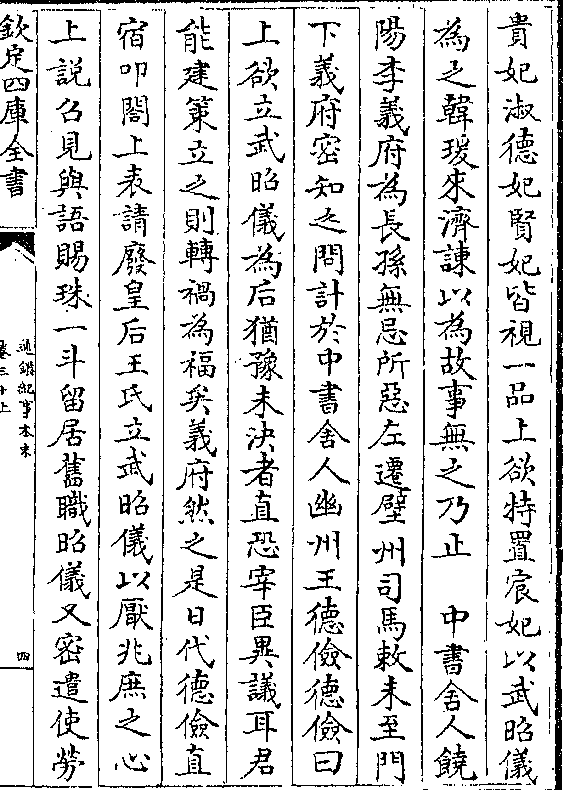 貴妃淑德妃賢妃皆視一品上欲特置宸妃以武昭儀
為之韓瑗來濟諫以為故事無之乃止　中書舍人饒
陽李義府為長孫無忌所惡左遷壁州司馬敕未至門
下義府密知之問計於中書舍人幽州王德儉德儉曰
上欲立武昭儀為后猶豫未決者直恐宰臣異議耳君
能建策立之則轉禍為福矣義府然之是日代德儉直
宿叩閤上表請廢皇后王氏立武昭儀以厭兆庶之心
上說召見與語賜珠一斗留居舊職昭儀又密遣使勞
欽定四庫全書
通鑑紀事本末
卷三十上
四